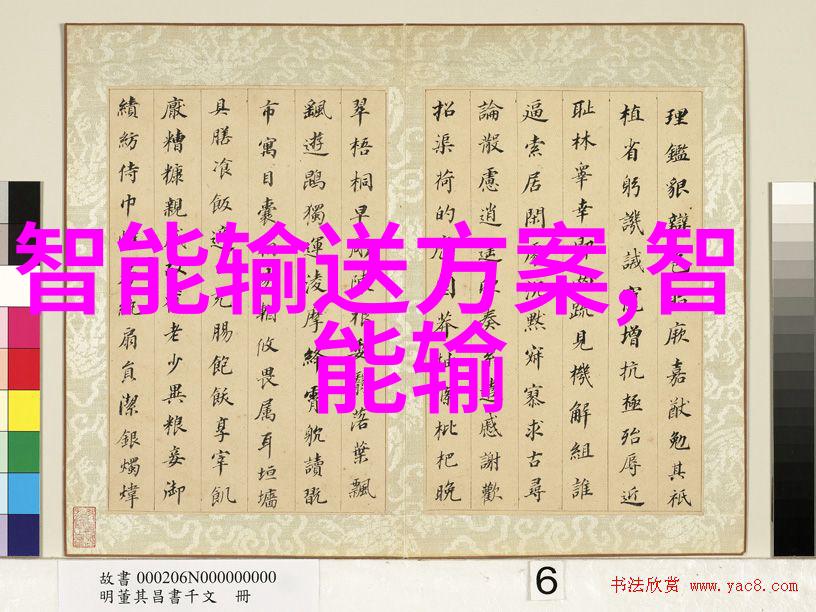 智能输送方案,智
能输
理鑑貌辯色貽厥嘉猷勉其祇
植省躬譏誡寵增抗極殆辱近
耻林睾幸即兩疏見機解組誰
逼索居閑處沉默寂寥求古尋
論散慮逍遙欣奏累遣慼謝歡
招渠荷的歷園莽抽條枇杷晚
翠梧桐早凋陳根委翳落葉飄
颻遊鵾獨運凌摩絳霄躭讀翫
市寓目囊箱易輶攸畏属耳垣墻
具膳飡飯適充腸飽飫享宰飢
厭糟糠親戚故舊老少異粮妾御
績紡侍巾帷房紈扇員潔銀燭煒
故書 000206N000000000
明董其昌書千文 冊
6
书法欣赏 www.yac8.com